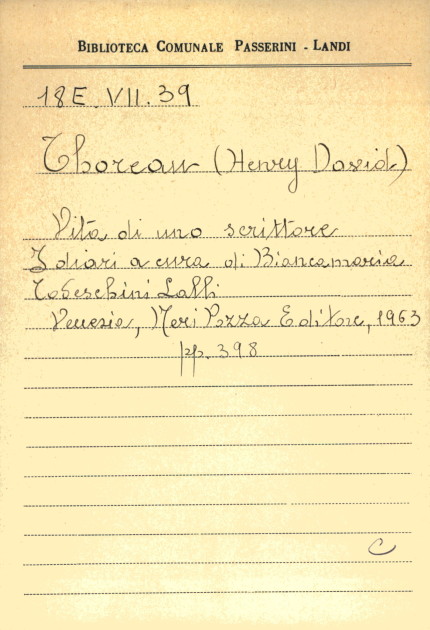 BIBLIOTECA COMUNALE PASSERINI - LANDI
18E.VII.39
Thoreau (Henry David)
Vita di uno scrittore
I diari a cura di Biancamaria
Tedeschini Lalli
Venezia, Neri Pozza Editore, 1963
pp. 398
C